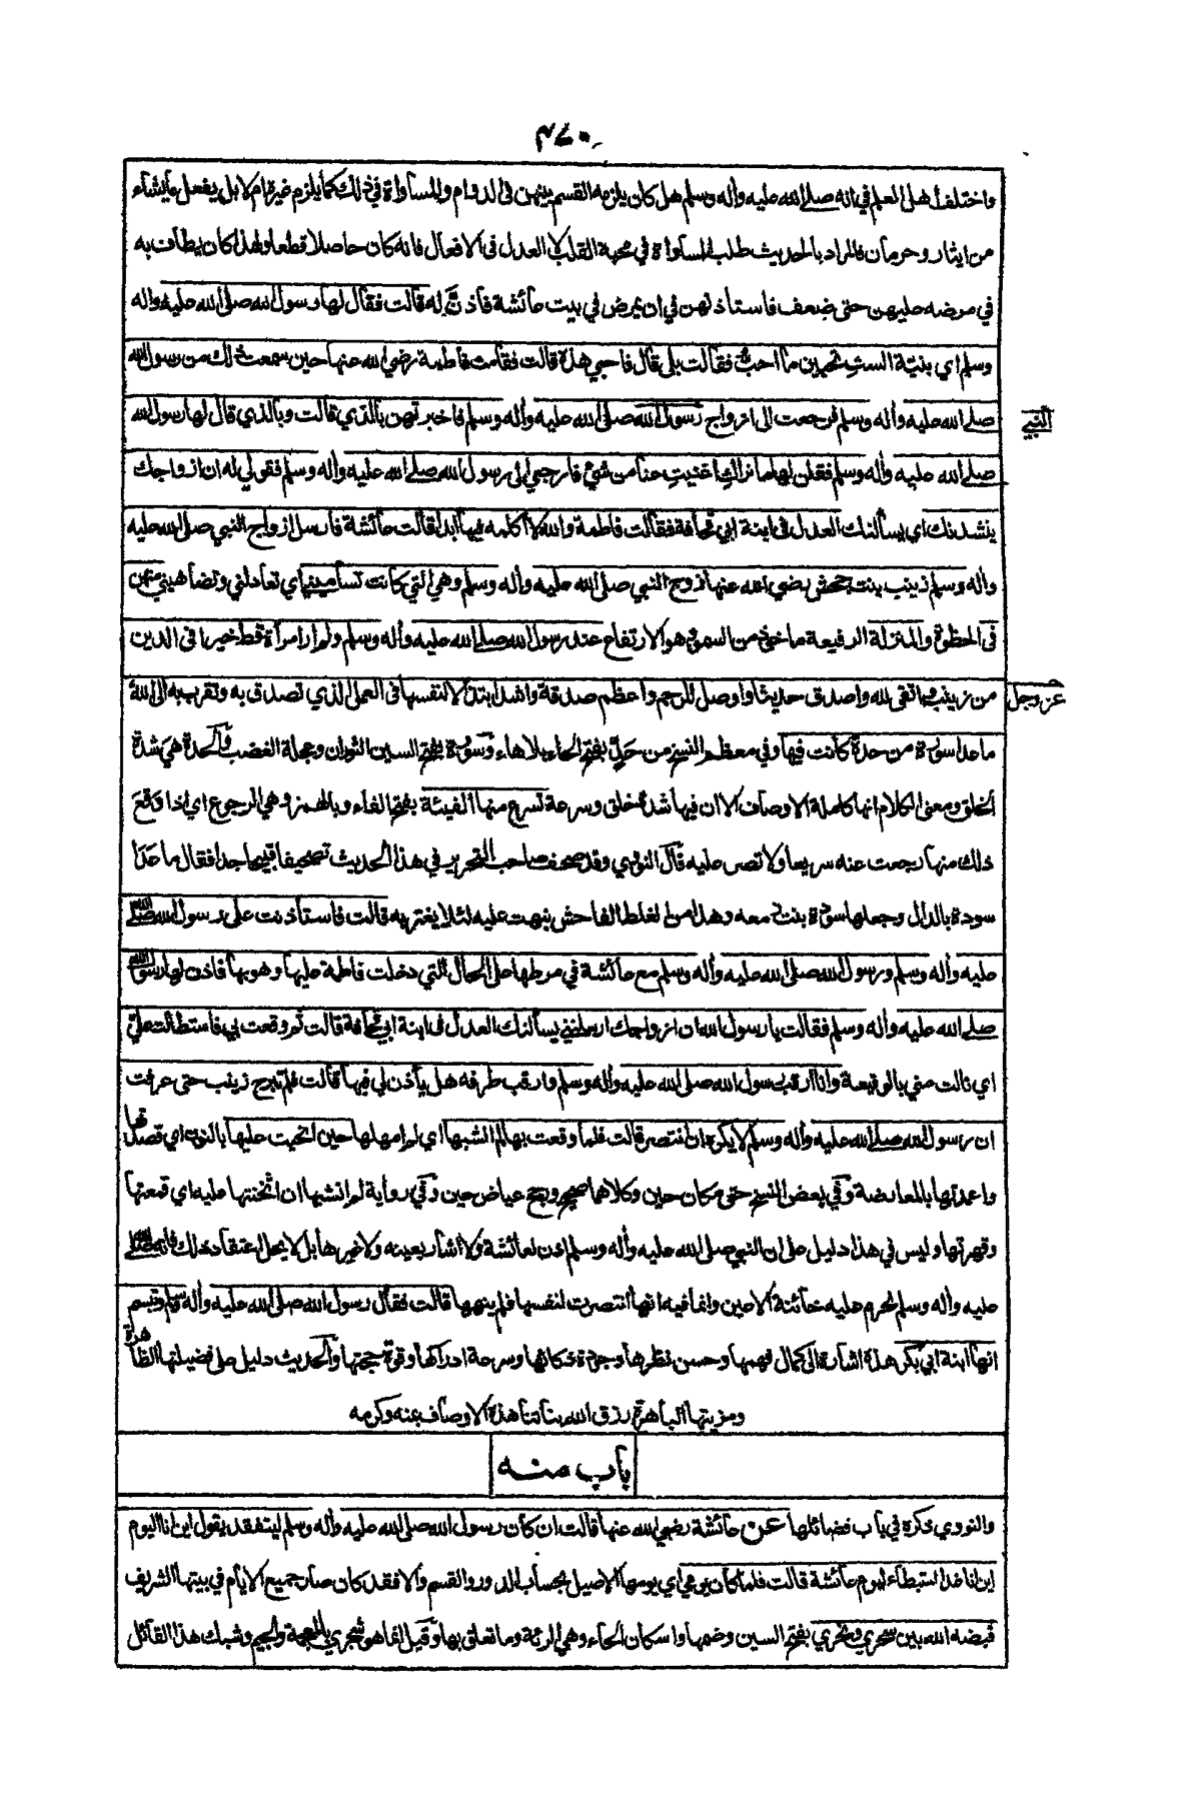 ٤٧٠
واختلف أهل العلم في انه صلى الله عليه واله وسلم هل كان يلزمه القسم بينهن في الدوام والمساواة في ذلك كما يلزم غيره ام لا بل يفعل ما يشاء
من ايثار وحرمان فالمراد بالحديث طلب المساواة في محبة القلب لا العدل في الافعال فانه كان حاصلا قطعا ولهذا كان يطاف به
في مرضه عليهن حتى ضعف فاستأذنهن في ان يمرض في بيت عائشة فأذن له قالت فقال لها رسول الله صلى الله عليه واله
وسلم اي بنية الست تحبين ما احب فقالت بلى قال فاحبي هذه قالت فقامت فاطمة رضي الله عنها حين سمعت ذلك من رسول الله
صلى الله عليه وأله وسلم فرجعت الى ازواج رسول الله صلى الله عليه وأله وسلم فاخبرتهن بالذي قالت وبالذي قال لها رسول الله
النبي
صلى الله عليه وأله وسلم فقلن لها ما نراك اغنيت عنا من شيء فارجعي الى رسول الله صلى الله عليه واله وسلم فقولي له ان ازواجك
ينشدنك اي يسألنك العدل في ابنة ابي قحافة فقالت فاطمة والله لا أكلمه فيها ابدا قالت عائشة فارسل ازواج النبي صلى الله عليه
وأله وسلم زينب بنت جحش رضي الله عنها زوج النبي صلى الله عليه وأله وسلم وهي التي كانت تساميني اي تعادلني وتضاهيني منهن
في الحظوة والمنزلة الرفيعة ماخوذ من السمو هو الارتفاع عند رسول الله صلى الله عليه وأله وسلم ولم ار امرأة قط خيرا في الدين
من زينب واتقى لله واصدق حديثا واوصل للرحم واعظم صدقة واشد ابتذالا لنفسها في العمل الذي تصدق به وتقرب به الى الله
عز وجل
ما عدا سورة من حدة كانت فيها وفي معظم النسخ من حد بفتح الحاء بلا هاء وسورة بفتح السين الثوران وعجلة الغضب والحدة هي شدة
الخلق ومعنى الكلام انها كاملة الاوصاف الا ان فيها شدة خلق وسرعة تسرع منها الفيئة بفتح الفاء وبالهمز وهي الرجوع اي اذا وقع
ذلك منها رجعت عنه سريعا ولا تصر عليه قال النووي وقد صحف صاحب التحرير في هذا الحديث تصحيفا قبيحا جدا فقال ما عدا
سودة بالدال وجعلها سودة بنت زمعه وهذا من الغلط الفاحش نبهت عليه لئلا يغتر به قالت فاستأذنت على رسول الله صلى الله
عليه وأله وسلم ورسول الله صلى الله عليه وأله وسلم مع عائشة في مرطها على الحال التي دخلت فاطمة عليها وهو بها فاذن لها رسول الله
صلى الله عليه وأله وسلم فقالت يا رسول الله ان ازواجك ارسلنني يسألنك العدل في ابنة ابي قحافة قالت ثم وقعت بي فاستطالت علي
اي نالت مني بالوقيعة وانا ارقب رسول الله صلى الله عليه وأله وسلم وارقب طرفه هل يأذن لي فيها قالت فلم تبرح زينب حتى عرفت
ان رسول الله صلى الله عليه وأله وسلم لا يكره ان انتصر قالت فلما وقعت بها لم انشبها اي لم امهلها حين انحيت عليها بالنون اي قصدتها
واعمدتها بالمعارضة وفي بعض النسخ حتى مكان حين وكلاهما صحيح ورجح عياض حين وفي رواية لم انشبها ان اثخنتها عليه اي قمعتها
وقهرتها وليس في هذا دليل على ان النبي صلى الله عليه وأله وسلم اذن لعائشة ولا اشار بعينه ولا غيرها بل لا يحل اعتقاد ذلك فانه صلى الله
عليه واله وسلم تحرم عليه خائنة الاعين وانما فيه انها انتصرت لنفسها فلم ينهها قالت فقال رسول الله صلى الله عليه وأله وسلم وتبسم
انها ابنة ابي بكر هذه اشارة الى كمال فهمها وحسن نظرها وجودة ذكائها وسرعة ادراكها وقوة حجتها والحديث دليل على فضيلتها الظاهرة
ومزيتها الباهرة رزق الله بناتنا هذه الاوصاف بمنه وكرمه
باب منه
والنووي ذكره في باب فضائلها عن عائشة رضي الله عنها قالت ان كان رسول الله صلى الله عليه وأله وسلم ليتفقد يقول اين انا اليوم
اين انا غدا استبطاء ليوم عائشة قالت فلما كان يومي اي يومها الاصيل بحساب الدور والقسم والا فقد كان صار جميع الايام في بيتها الشريف
قبضه الله بين سحري ونحري بفتح السين وضمها واسكان الحاء وهي الرئة وما تعلق بها وقيل انما هو شجري بالمعجمة والجيم وشبك هذا القائل